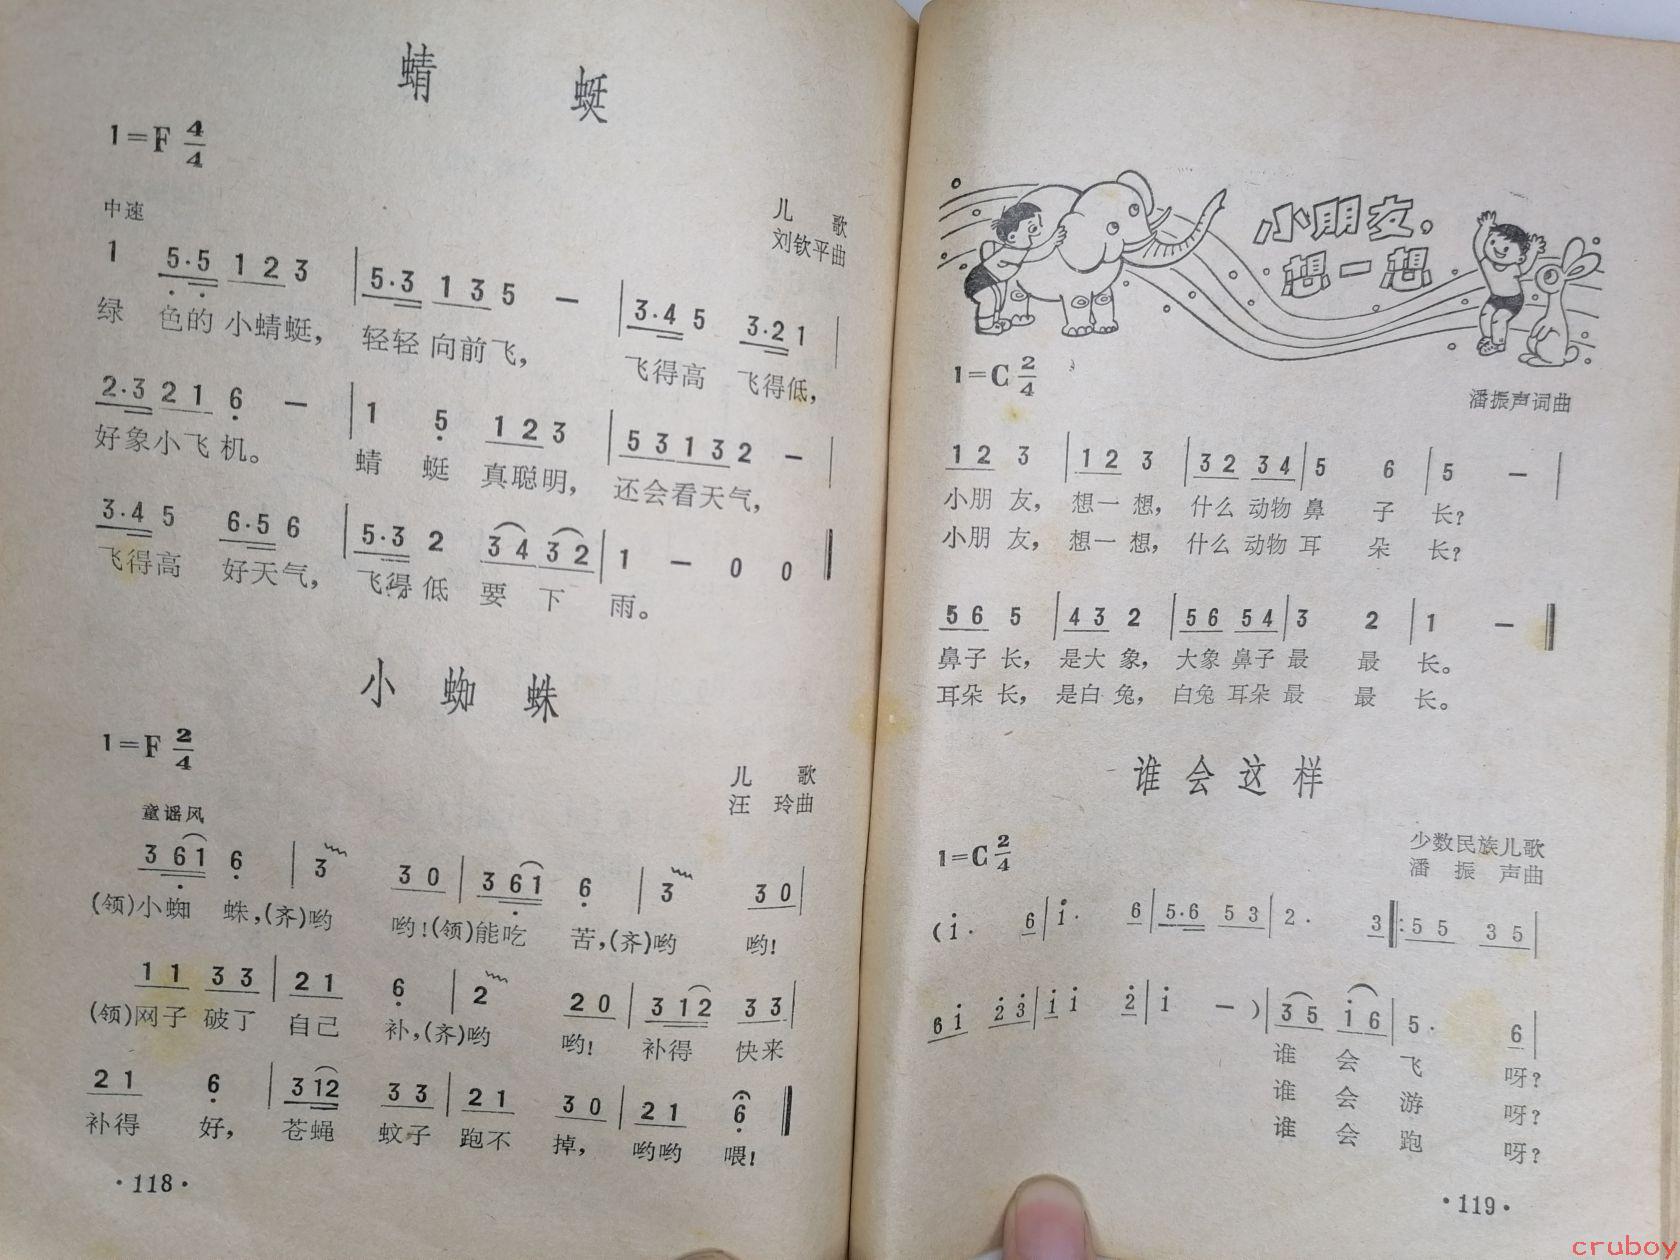 蜻 蜓
1=F 4/4
中速
儿 歌
刘钦平曲
1 5·5 1 2 3 | 5·3 1 3 5 — | 3·4 5 3·2 1 |
绿 色的 小蜻蜓， 轻轻 向前飞， 飞得高 飞得低，
2·3 2 1 6 — | 1 5 1 2 3 | 5 3 1 3 2 — |
好象小飞机。 蜻 蜓 真聪明， 还会看天气，
3·4 5 6·5 6 | 5·3 2 3 4 3 2 | 1 — 0 0 ‖
飞得高 好天气， 飞得低 要 下 雨。
小 蜘 蛛
1=F 2/4
儿 歌
汪 玲曲
童谣风
3 6 1 6 | 3 3 0 | 3 6 1 6 | 3 3 0 |
(领)小蜘 蛛，(齐)哟 哟！(领)能吃 苦，(齐)哟 哟！
1 1 3 3 | 2 1 6 | 2 2 0 | 3 1 2 3 3 |
(领)网子 破了 自己 补，(齐)哟 哟！ 补得 快来
2 1 6 | 3 1 2 3 3 | 2 1 3 0 | 2 1 6 ‖
补得 好， 苍蝇 蚊子 跑不 掉， 哟哟 喂！
·118·
小朋友，
想一想
1=C 2/4
潘振声词曲
1 2 3 | 1 2 3 | 3 2 3 4 | 5 6 | 5 — |
小朋 友， 想一 想， 什么 动物 鼻 子 长？
小朋 友， 想一 想， 什么 动物 耳 朵 长？
5 6 5 | 4 3 2 | 5 6 5 4 | 3 2 | 1 — ‖
鼻子 长， 是大 象， 大象 鼻子 最 最 长。
耳朵 长， 是白 兔， 白兔 耳朵 最 最 长。
谁会这样
1=C 2/4
少数民族儿歌
潘 振 声曲
(i· 6 | i· 6 | 5·6 5 3 | 2· 3 ‖: 5 5 3 5 |
6 i 2 3 | i i 2 | i — ) | 3 5 i 6 | 5· 6 |
谁 会 飞 呀？
谁 会 游 呀？
谁 会 跑 呀？
·119·
cruboy